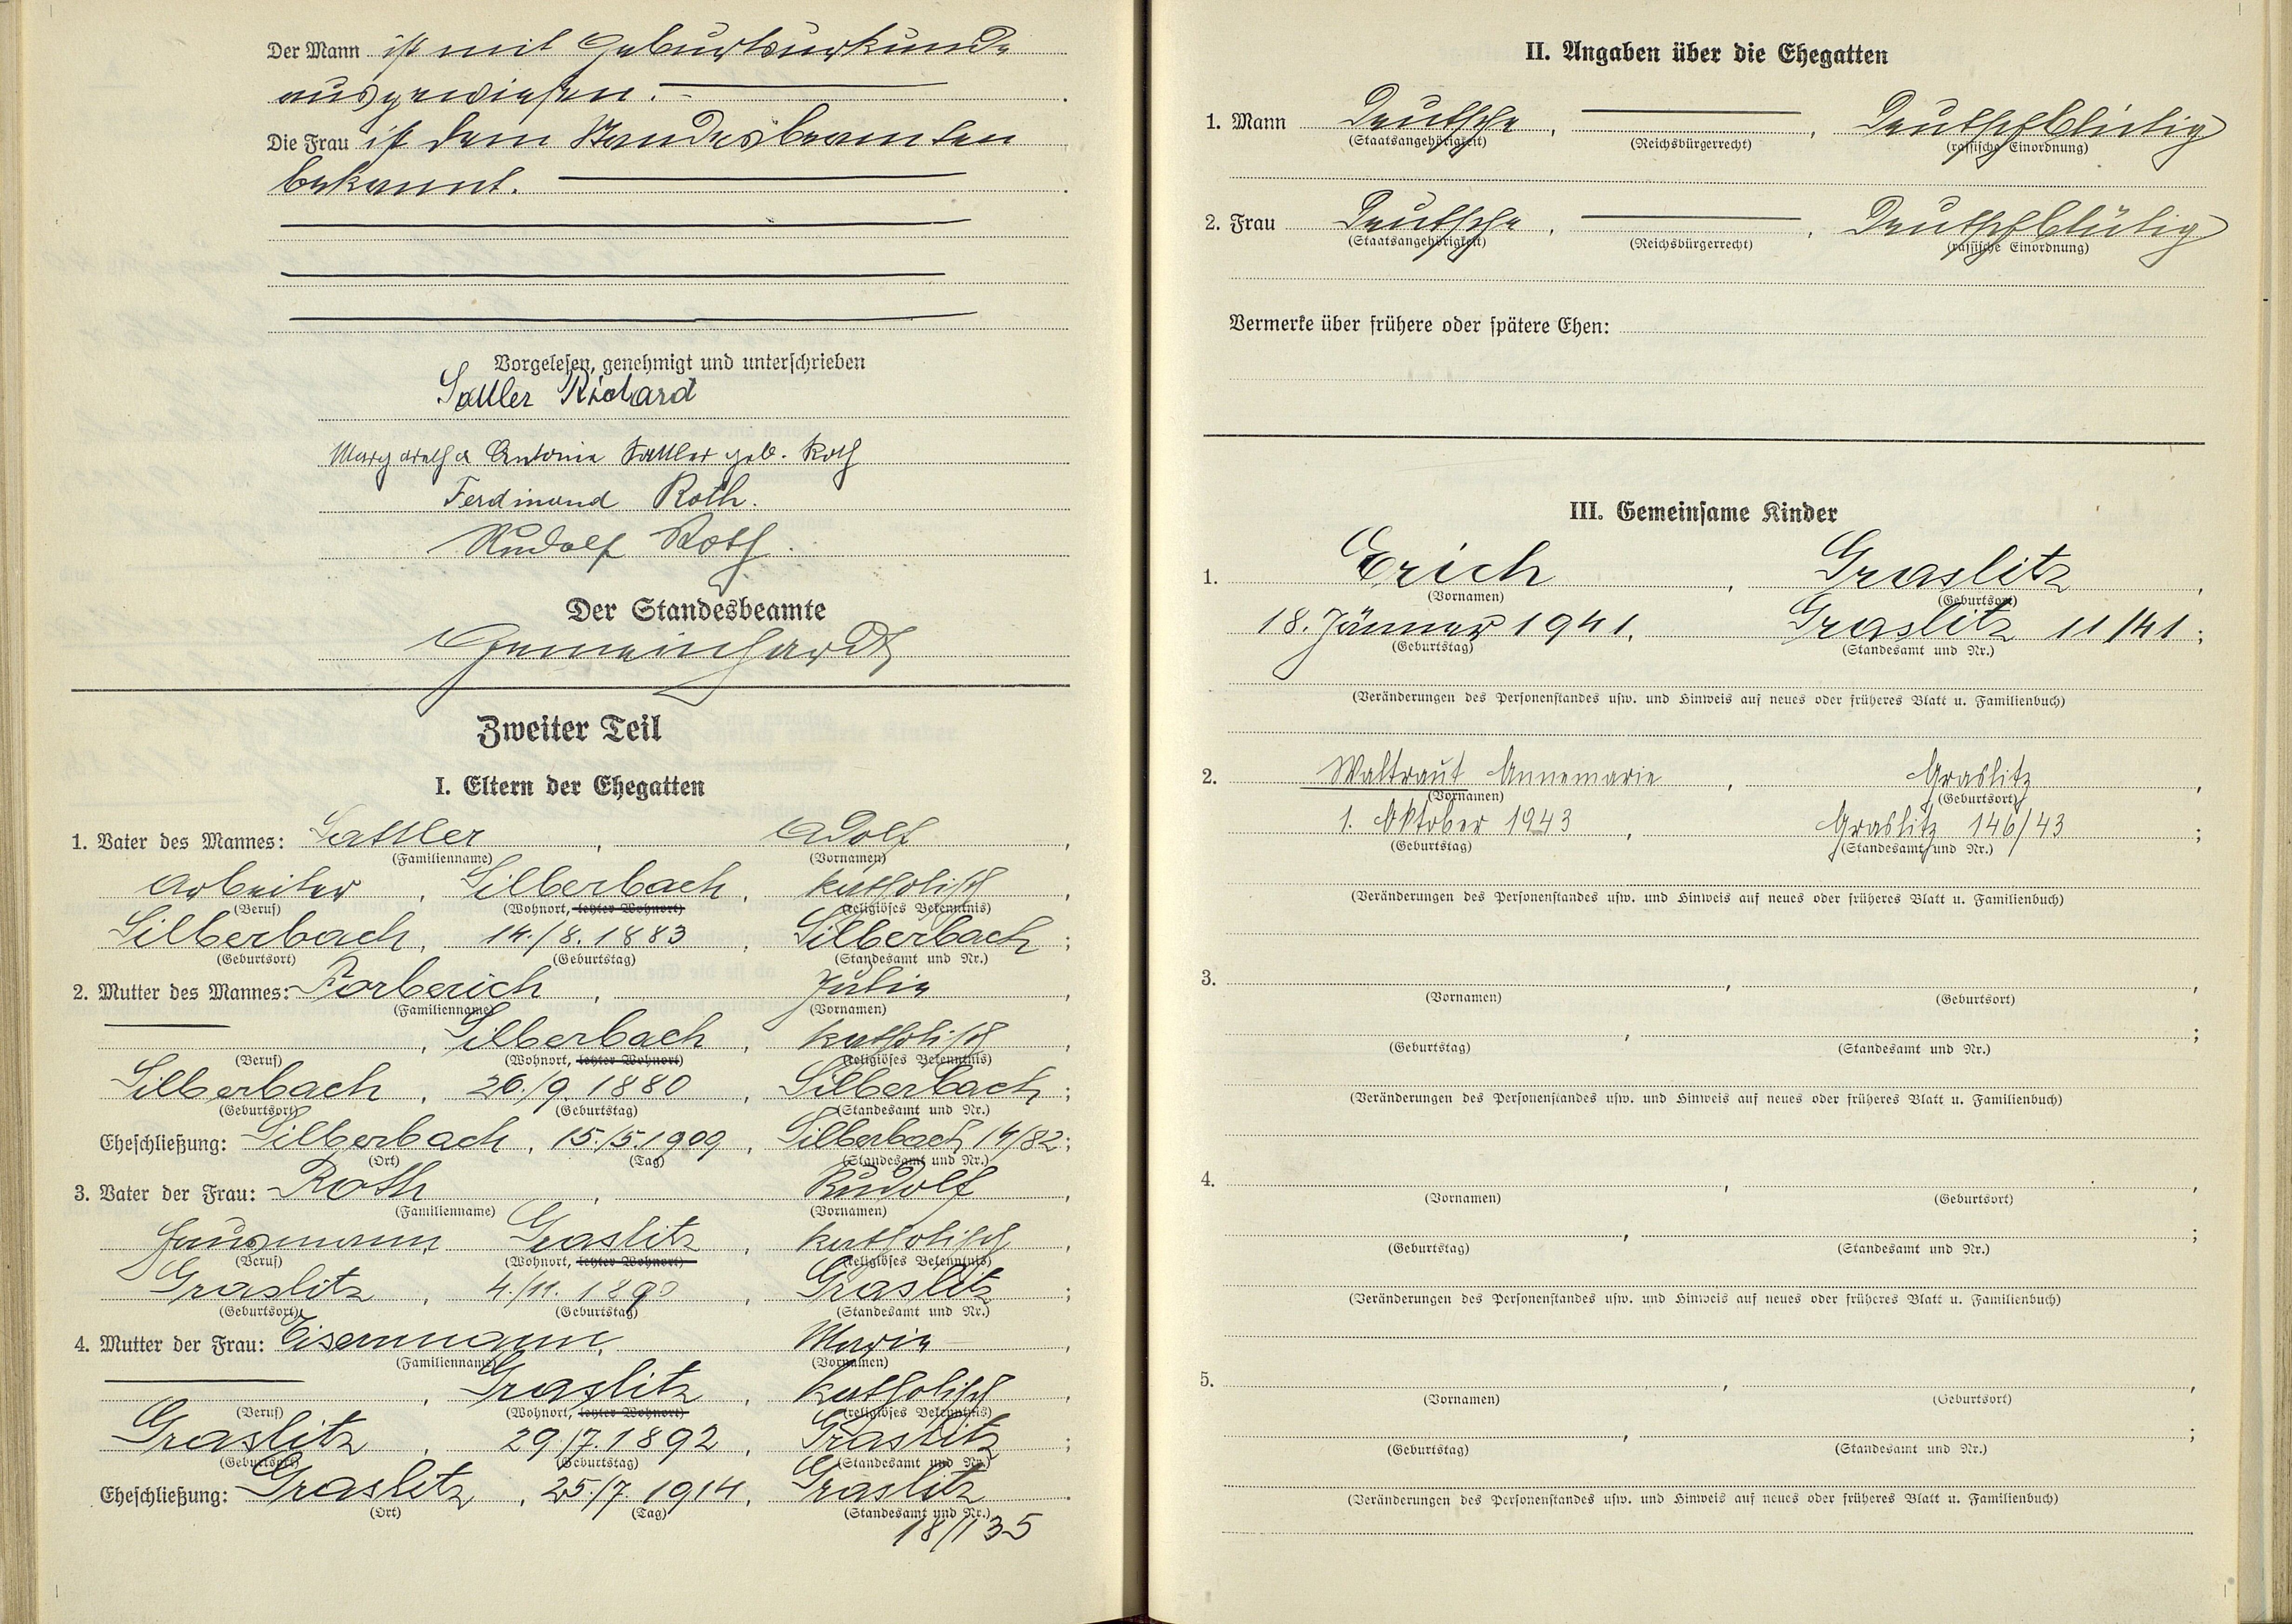 Der Mann ist mit Geburtsurkunde
ausgewiesen.
Die Frau ist dem Standesbeamten
bekannt.
Vorgelesen, genehmigt und unterschrieben
Sattler Richard
Margaretha Antonie Sattler geb. Roth
Ferdinand Roth.
Rudolf Roth.
Der Standesbeamte
Gemeinhardt
Zweiter Teil
I. Eltern der Ehegatten
1. Vater des Mannes: Sattler, Adolf,
(Familienname) (Vornamen)
Arbeiter, Silberbach, katholisch,
(Beruf) (Wohnort, letzter Wohnort) (religiöses Bekenntnis)
Silberbach, 14./8. 1883, Silberbach;
(Geburtsort) (Geburtstag) (Standesamt und Nr.)
2. Mutter des Mannes: Korberich, Julie,
(Familienname) (Vornamen)
Silberbach, katholisch,
(Beruf) (Wohnort, letzter Wohnort) (religiöses Bekenntnis)
Silberbach, 26./9. 1880, Silberbach;
(Geburtsort) (Geburtstag) (Standesamt und Nr.)
Eheschließung: Silberbach, 15./5. 1909, Silberbach 14/82;
(Ort) (Tag) (Standesamt und Nr.)
3. Vater der Frau: Roth, Rudolf,
(Familienname) (Vornamen)
Hausmann, Graslitz, katholisch,
(Beruf) (Wohnort, letzter Wohnort) (religiöses Bekenntnis)
Graslitz, 4./11. 1890, Graslitz;
(Geburtsort) (Geburtstag) (Standesamt und Nr.)
4. Mutter der Frau: Eisenmann, Marie,
(Familienname) (Vornamen)
Graslitz, katholisch,
(Beruf) (Wohnort, letzter Wohnort) (religiöses Bekenntnis)
Graslitz, 29./7. 1892, Graslitz;
(Geburtsort) (Geburtstag) (Standesamt und Nr.)
Eheschließung: Graslitz, 25./7. 1914, Graslitz.
(Ort) (Tag) (Standesamt und Nr.)
18/135
II. Angaben über die Ehegatten
1. Mann Deutsche, Deutschblütig
(Staatsangehörigkeit) (Reichsbürgerrecht) (rassische Einordnung)
2. Frau Deutsche, Deutschblütig
(Staatsangehörigkeit) (Reichsbürgerrecht) (rassische Einordnung)
Vermerke über frühere oder spätere Ehen:
III. Gemeinsame Kinder
1. Erich, Graslitz,
(Vornamen) (Geburtsort)
18. Jänner 1941, Graslitz 11/41;
(Geburtstag) (Standesamt und Nr.)
(Veränderungen des Personenstandes usw. und Hinweis auf neues oder früheres Blatt u. Familienbuch)
2. Waltraut Annemarie, Graslitz,
(Vornamen) (Geburtsort)
1. Oktober 1943, Graslitz 146/43;
(Geburtstag) (Standesamt und Nr.)
(Veränderungen des Personenstandes usw. und Hinweis auf neues oder früheres Blatt u. Familienbuch)
3.
(Vornamen) (Geburtsort)
(Geburtstag) (Standesamt und Nr.)
(Veränderungen des Personenstandes usw. und Hinweis auf neues oder früheres Blatt u. Familienbuch)
4.
(Vornamen) (Geburtsort)
(Geburtstag) (Standesamt und Nr.)
(Veränderungen des Personenstandes usw. und Hinweis auf neues oder früheres Blatt u. Familienbuch)
5.
(Vornamen) (Geburtsort)
(Geburtstag) (Standesamt und Nr.)
(Veränderungen des Personenstandes usw. und Hinweis auf neues oder früheres Blatt u. Familienbuch)